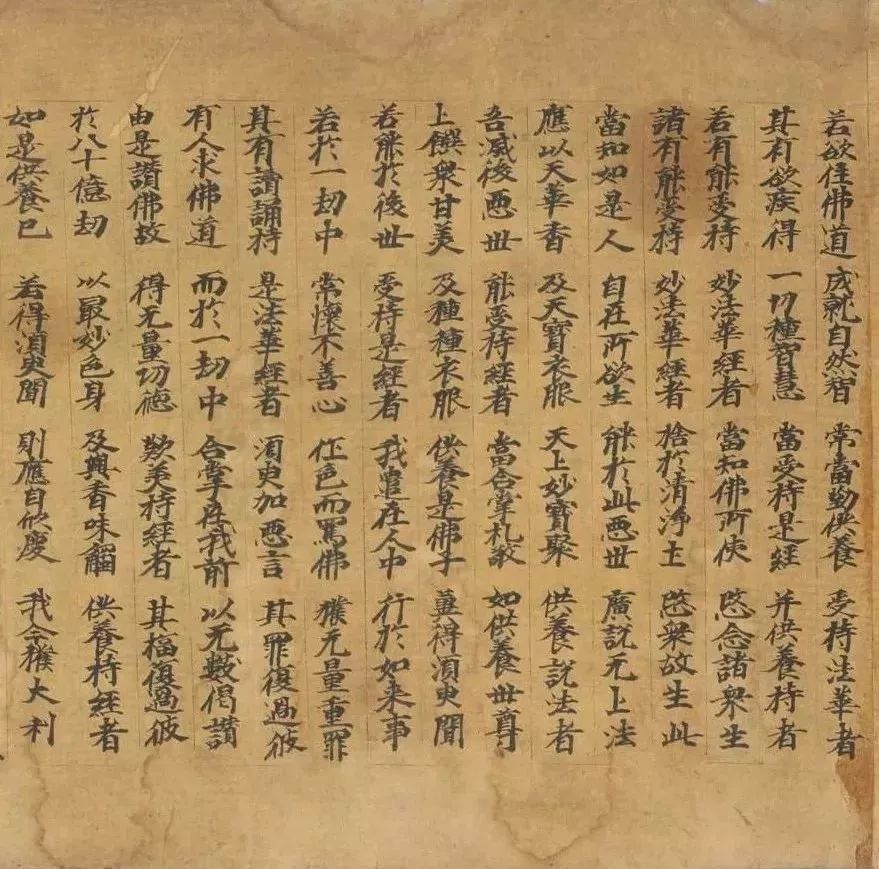 若欲住佛道 成就自然智 常當勤供養 受持法華者
其有欲疾得 一切種智慧 當受持是經 并供養持者
若有能受持 妙法華經者 當知佛所使 愍念諸衆生
諸有能受持 妙法華經者 捨於清淨土 愍衆故生此
當知如是人 自在所欲生 能於此惡世 廣說无上法
應以天華香 及天寶衣服 天上妙寶聚 供養說法者
吾滅後惡世 能受持經者 當合掌礼敬 如供養世尊
上饌衆甘美 及種種衣服 供養是佛子 冀得須臾聞
若能於後世 受持是經者 我遣在人中 行於如来事
若於一劫中 常懷不善心 作色而罵佛 獲无量重罪
其有讀誦持 是法華經者 須臾加惡言 其罪復過彼
有人求佛道 而於一劫中 合掌在我前 以无數偈讚
由是讚佛故 得无量功德 歎美持經者 其福復過彼
於八十億劫 以最妙色身 及與香味觸 供養持經者
如是供養已 若得須臾聞 則應自欣慶 我今獲大利